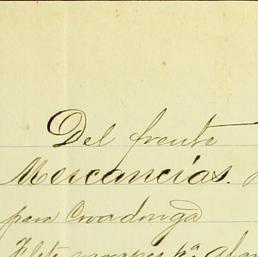 Del frente
Mercancías.
para Covadonga
Flete